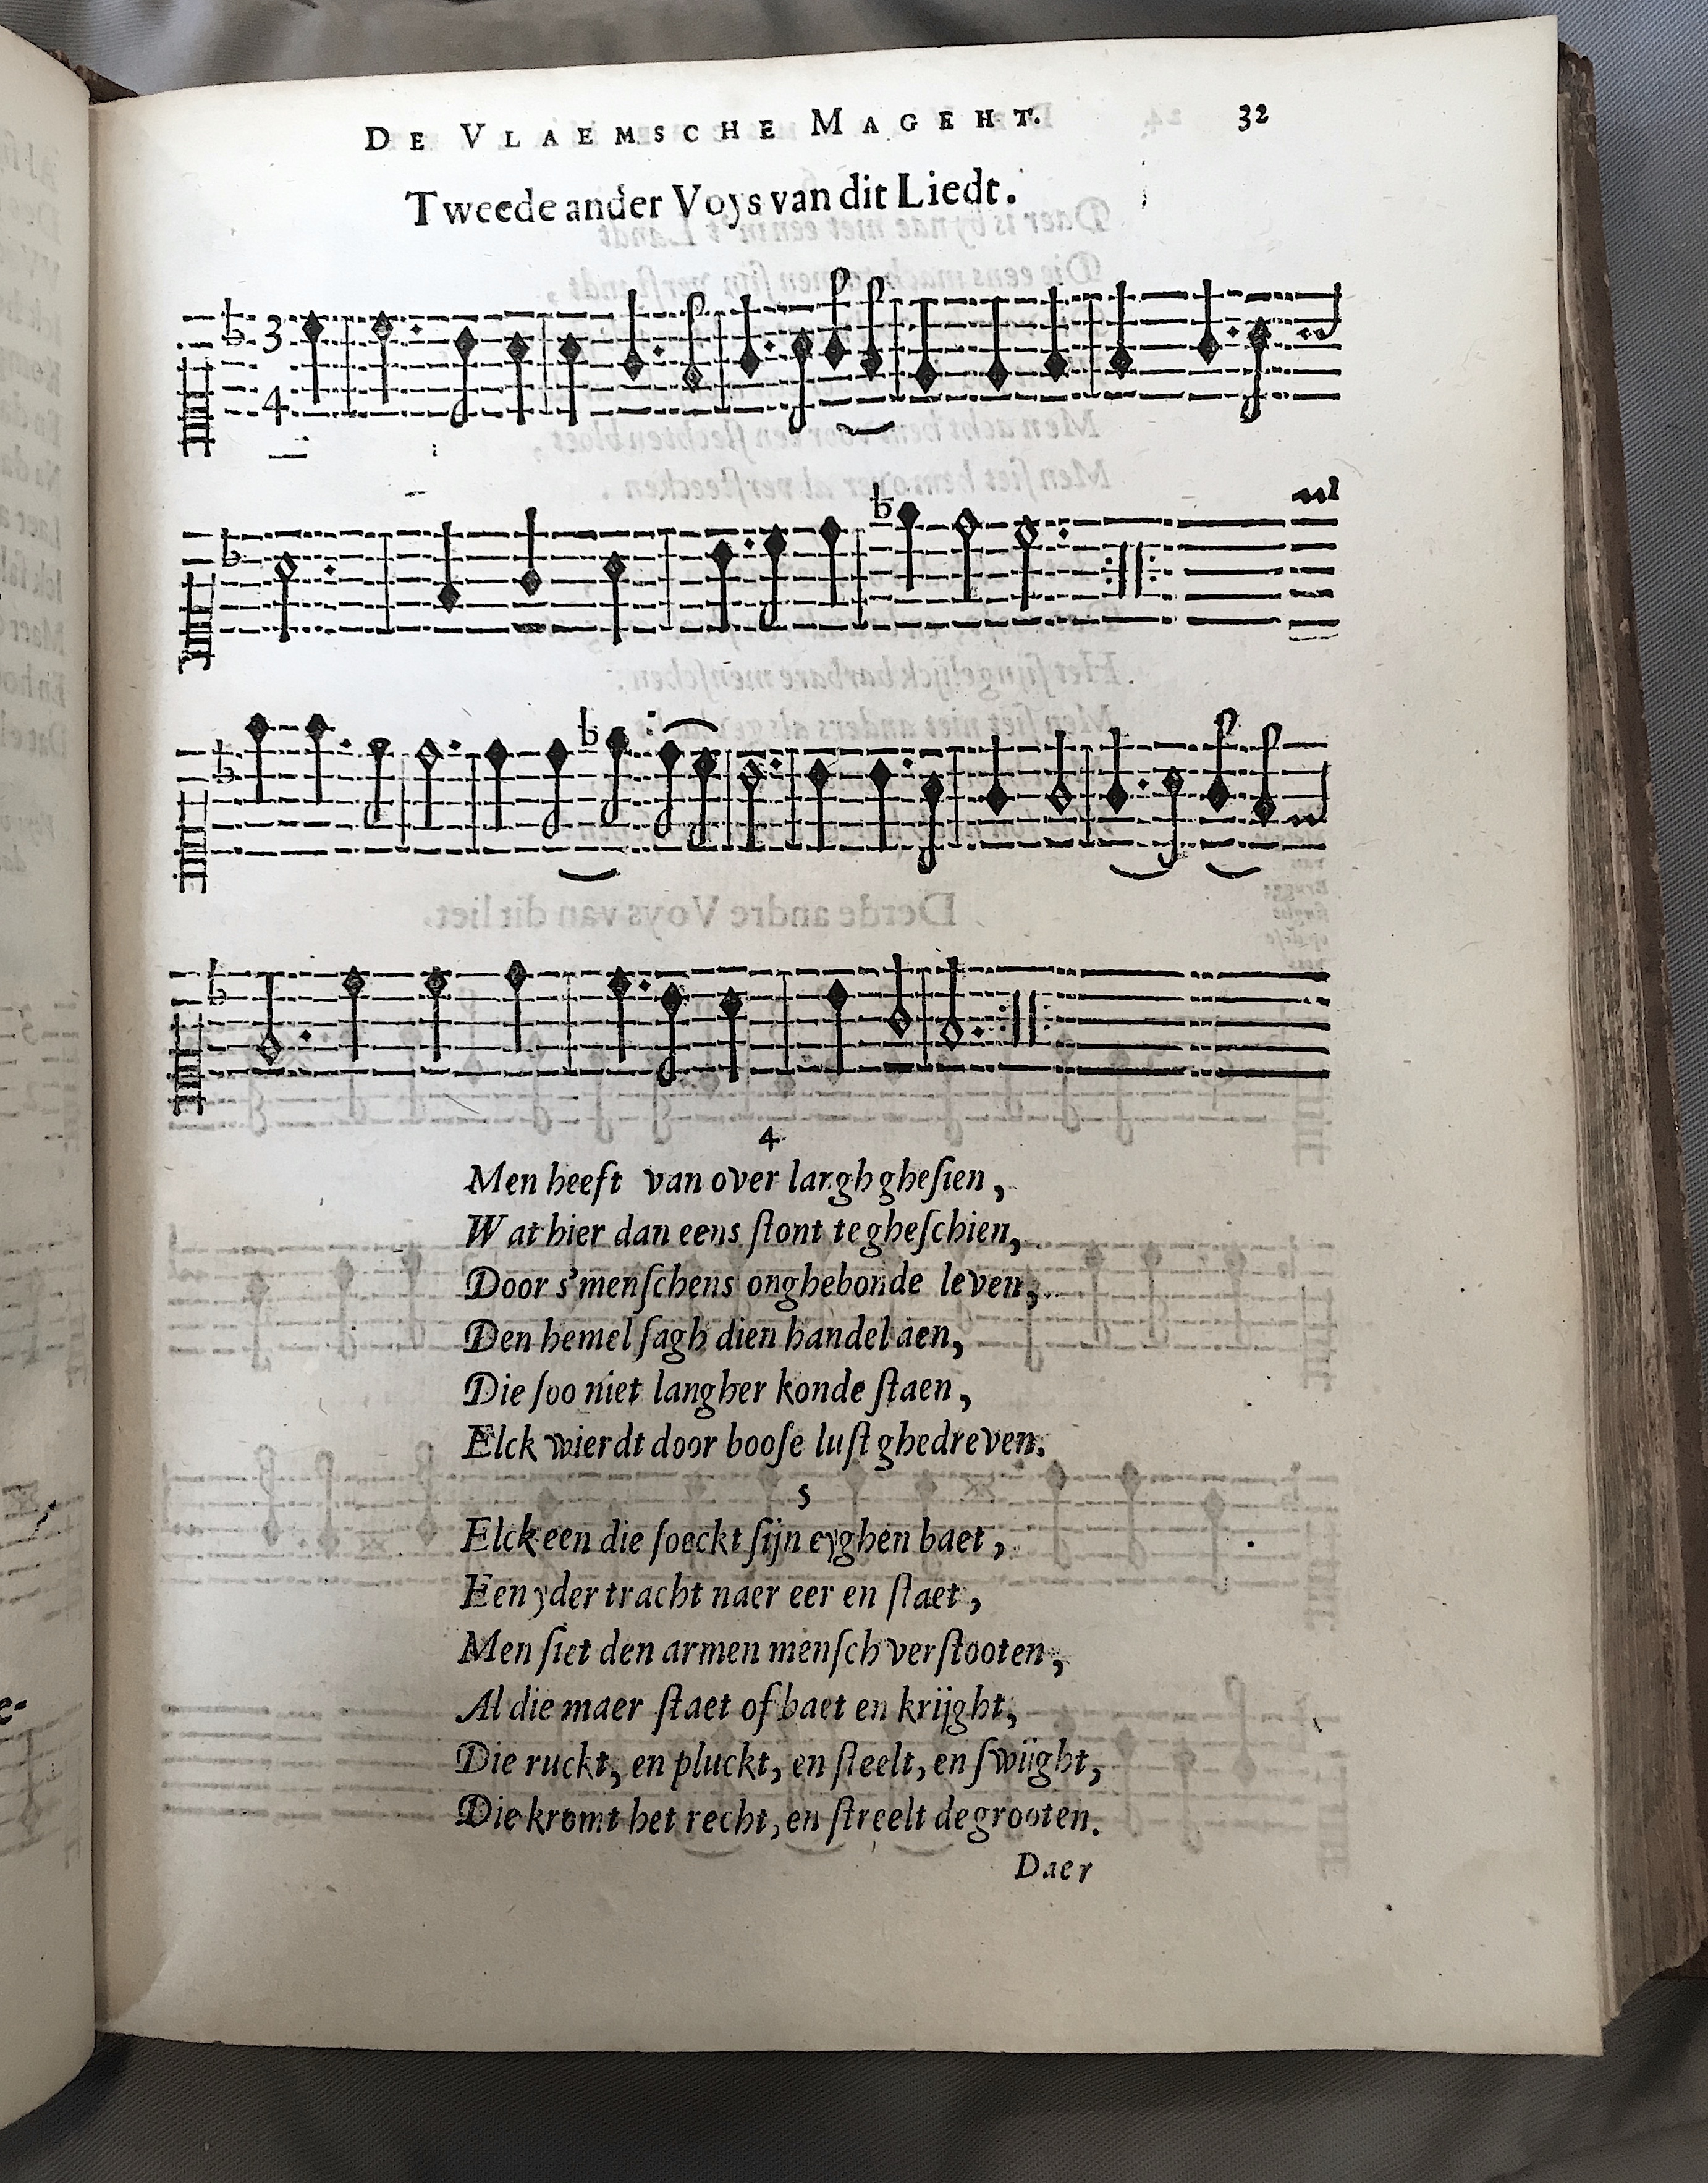 DE VLAEMSCHE MAGEHT. 32
Tweede ander Voys van dit Liedt.
3
4
4
Men heeft van over largh gheſien,
Wat hier dan eens ſtont te gheſchien,
Door s'menſchens onghebonde leven,
Den hemel ſagh dien handel aen,
Die ſoo niet langher konde ſtaen,
Elck wierdt door booſe luſt ghedreven.
5
Elck een die ſoeckt ſijn eyghen baet,
Een yder tracht naer eer en ſtaet,
Men ſiet den armen menſch verſtooten,
Al die maer ſtaet of baet en krijght,
Die ruckt, en pluckt, en ſteelt, en ſwijght,
Die kromt het recht, en ſtreelt de grooten.
Daer